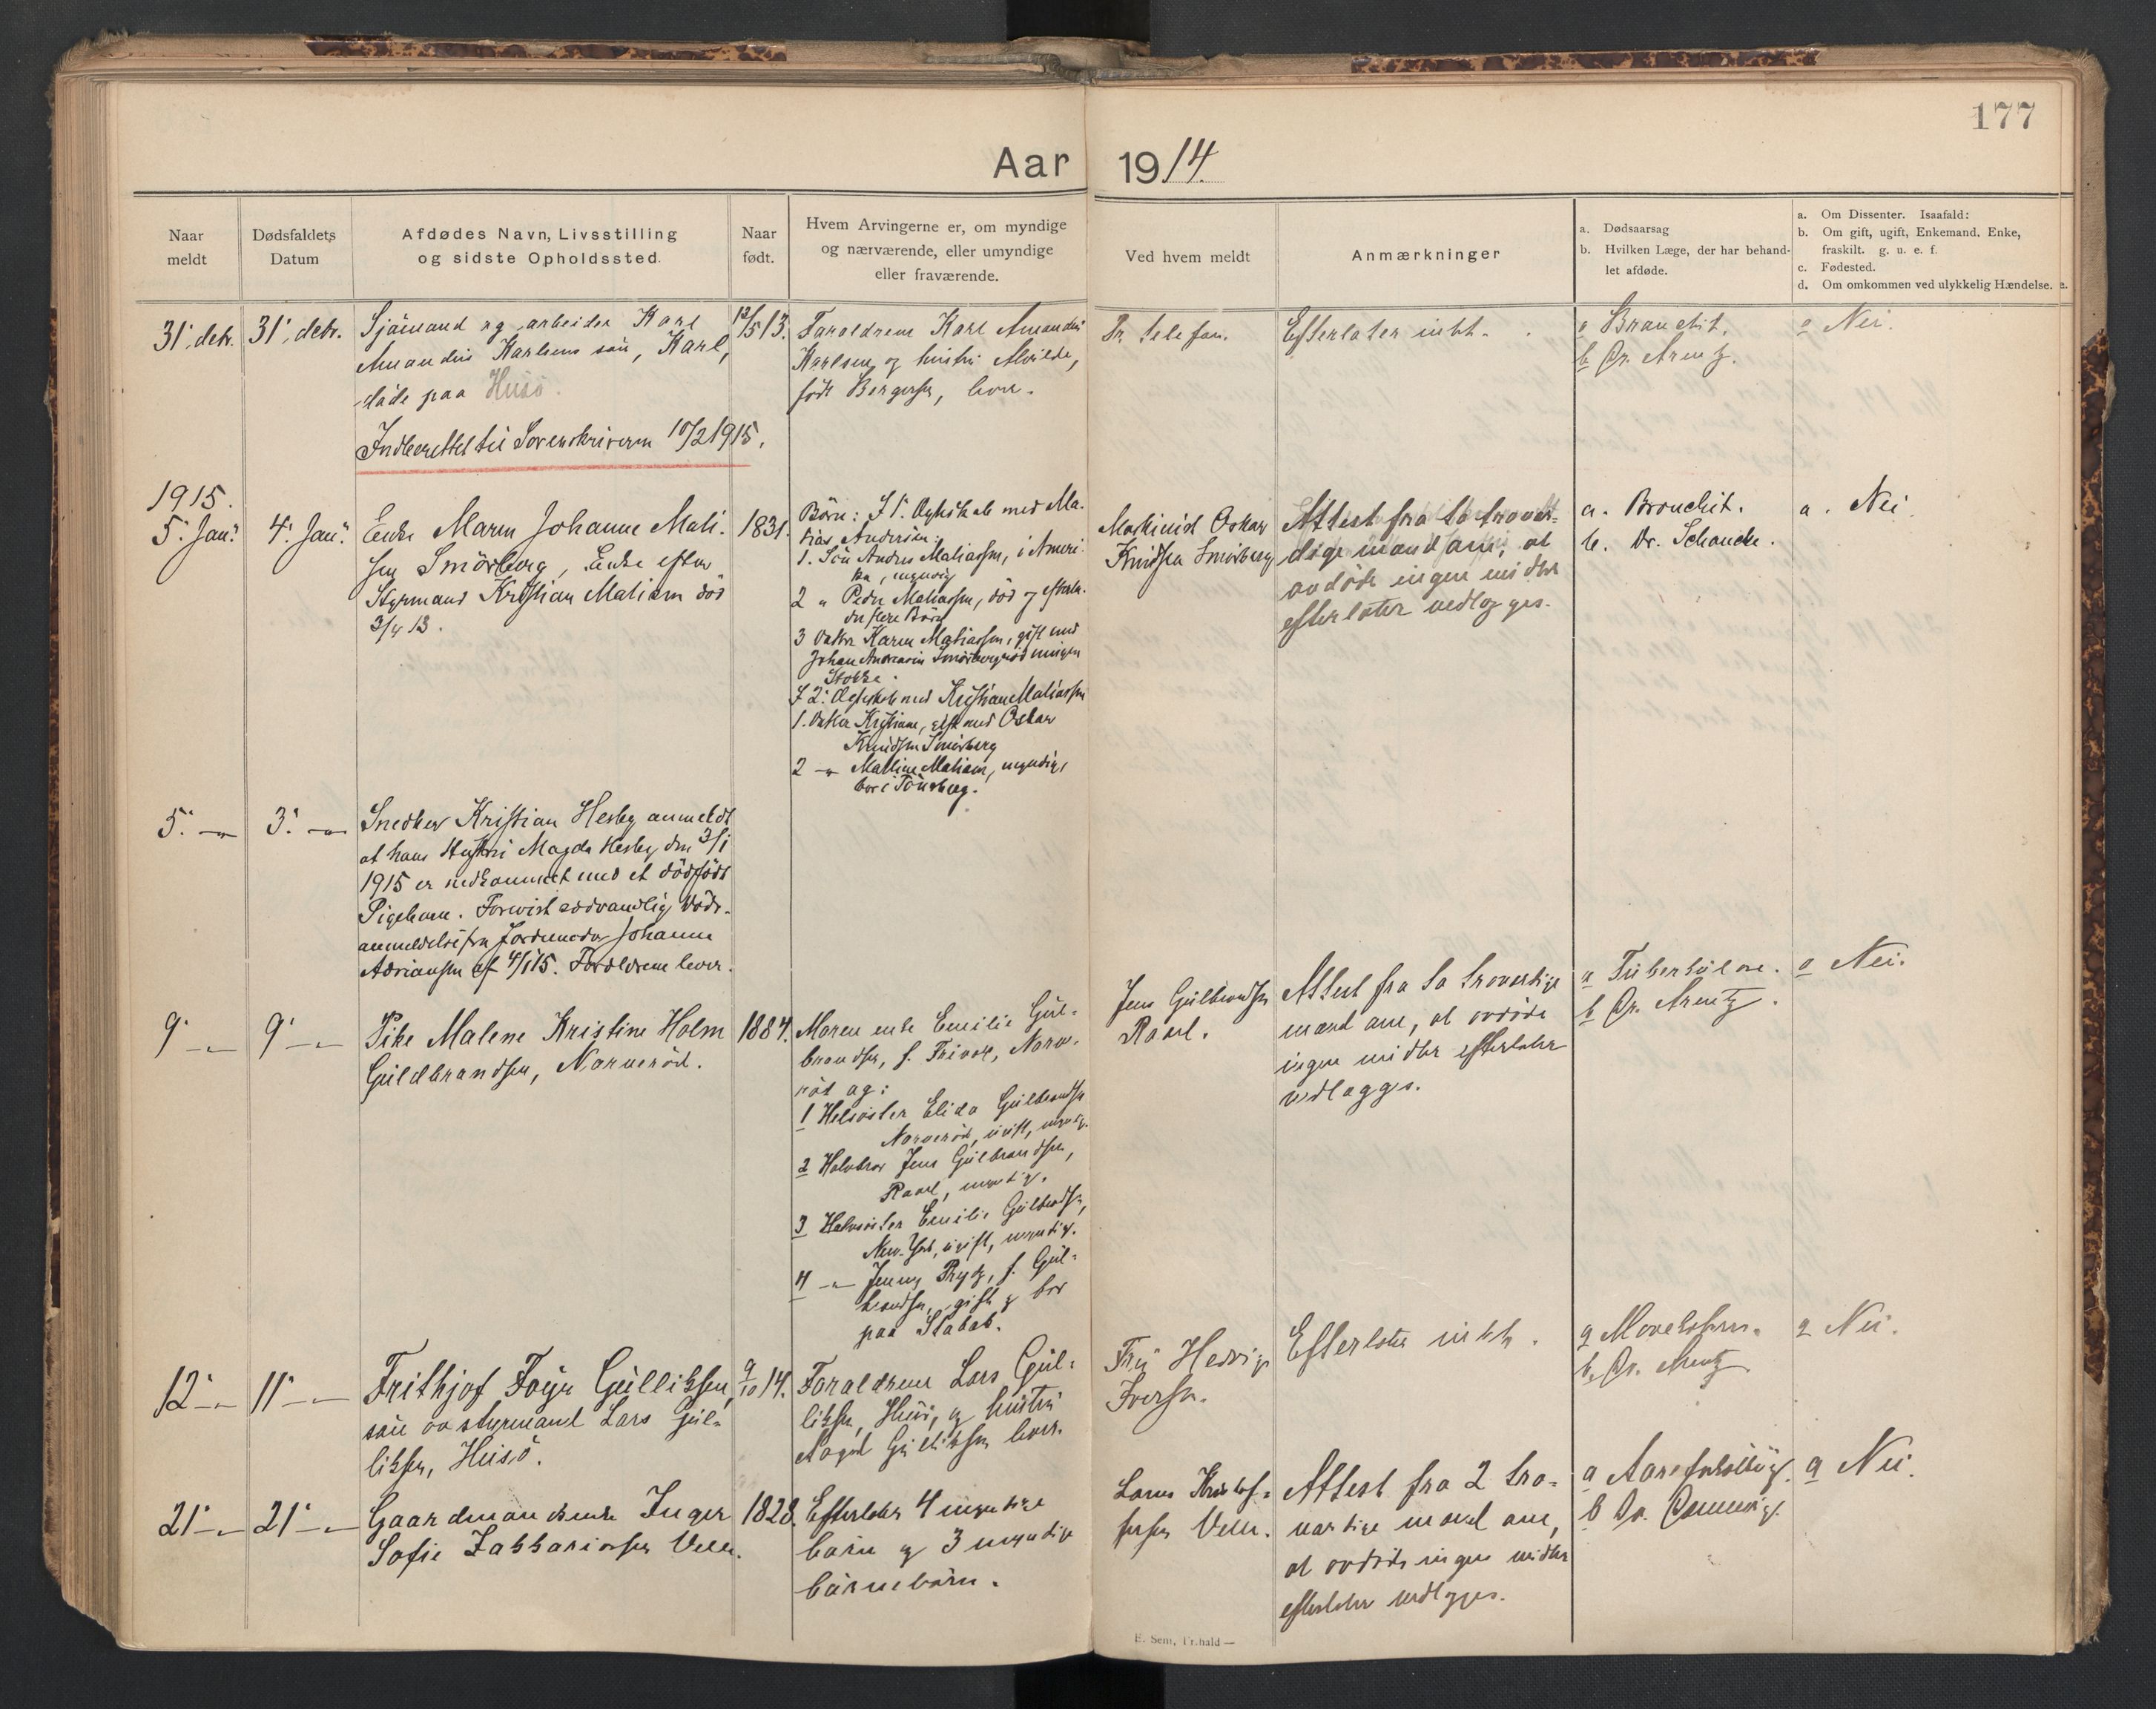 177
Aar 1914.
Naar meldt
Dødsfaldets Datum
Afdødes Navn, Livsstilling og sidste Opholdssted.
Naar født.
Hvem Arvingerne er, om myndige og nærværende, eller umyndige eller fraværende.
Ved hvem meldt
Anmærkninger
a. Dødsaarsag
b. Hvilken Læge, der har behandlet afdøde.
a. Om Dissenter. Isaafald:
b. Om gift, ugift, Enkemand, Enke, fraskilt. g. u. e. f.
c. Fødested.
d. Om omkommen ved ulykkelig Hændelse. e.
31' debr.
31' debr.
Sjömand og arbeider Karl
Amandus Karlsens sön, Karl,
döde paa Husö.
12/5 13.
Foraldrene Karl Amandus
Karlsen og hustru Alvilde,
född Bergersen, lever.
Pr. telefon.
Efterlater intet.
a Bronchit.
b Dr. Arentz.
a Nei.
Indberettet til Sorenskriveren 10/2 1915.
1915.
5' Jan'
4' Jan'
Enke Maren Johanne Mati-
sen Smörberg, Enke efter
Styrmand Kristian Matisen död
3/4 13.
1831.
Börn: I 1' Ægteskab med Ma-
tias Andersen:
1. Sön Andres Matiassen, i Ameri-
ka, myndig
2 " Peder Matiassen, död og efterla-
der flere Börn
3 Datter Karen Matiassen, gift med
Johan Andersen Smörberg
Stokke.
I 2' Ægteskab med Kristian Matiassen
1. Datter Kristiane, gift med Oskar
Knudsen Smörberg
2 -"- Matline Matisen, myndig,
bor i Tönsberg.
Maskinist Oskar
Knudsen Smörberg
Attest fra to trover-
dige mænd om, at
avdöde ingen midler
efterlater vedlægges.
a. Bronchit.
b. Dr. Schancke.
a. Nei
5' -"-
3' -"-
Snedker Kristian Hesby anmeldt
at hans Hustru Magda Hesby den 3/1
1915 er nedkommet med et dödfödt
Pigebarn. Forevist sedvanlig Döds-
anmeldelse fra Jordmoder Johanne
Adriansen af 4/1 15. Forældrene lever.
9' -"-
9' -"-
Pike Malene Kristine Holm
Guldbrandsen, Narveröd.
1884.
Moren enke Emilie Gul-
brandsen, f. Frivold, Narve-
röd og:
1 Helsöster Elida Gulbrandsen
Narveröd, ugift, myndig.
2 Halvbror Jens Gulbrandsen,
Ravel, myndig.
3 Halvsöster Emilie Gulbrandsen,
New-York, ugift, myndig.
4 -"- Jenny Rytz, f. Gul-
brandsen, gift og bor
paa Stabæk.
Jens Gulbrandsen
Ravel.
Attest fra to troverdige
mænd om, at avdöde
ingen midler efterlater
vedlægges.
a Tuberkulose.
b Dr. Arentz.
a Nei.
12' -"-
11' -"-
Frithjof Föyn Gulliksen,
sön av styrmand Lars Gul-
liksen, Husö.
9/10 14.
Foraldrene Lars Gul-
liksen, Husö, og hustru
Aagot Gulliksen lever.
Fru Hedvig
Iversen.
Efterlater intet.
a
b Dr. Arentz
a Nei.
21' -"-
21' -"-
Gaardmandsenke Inger
Sofie Zakkariassen Velle.
1828.
Efterlater 4 myndige
börn og 3 myndige
börnebörn.
Lorens Kristof-
fersen Velle.
Attest fra 2 tro-
værdige mænd om,
at avdöde ingen midler
efterlater vedlægges.
a Aareforkalkning.
b Dr.
a Nei.
E. Sem, Fr.hald —